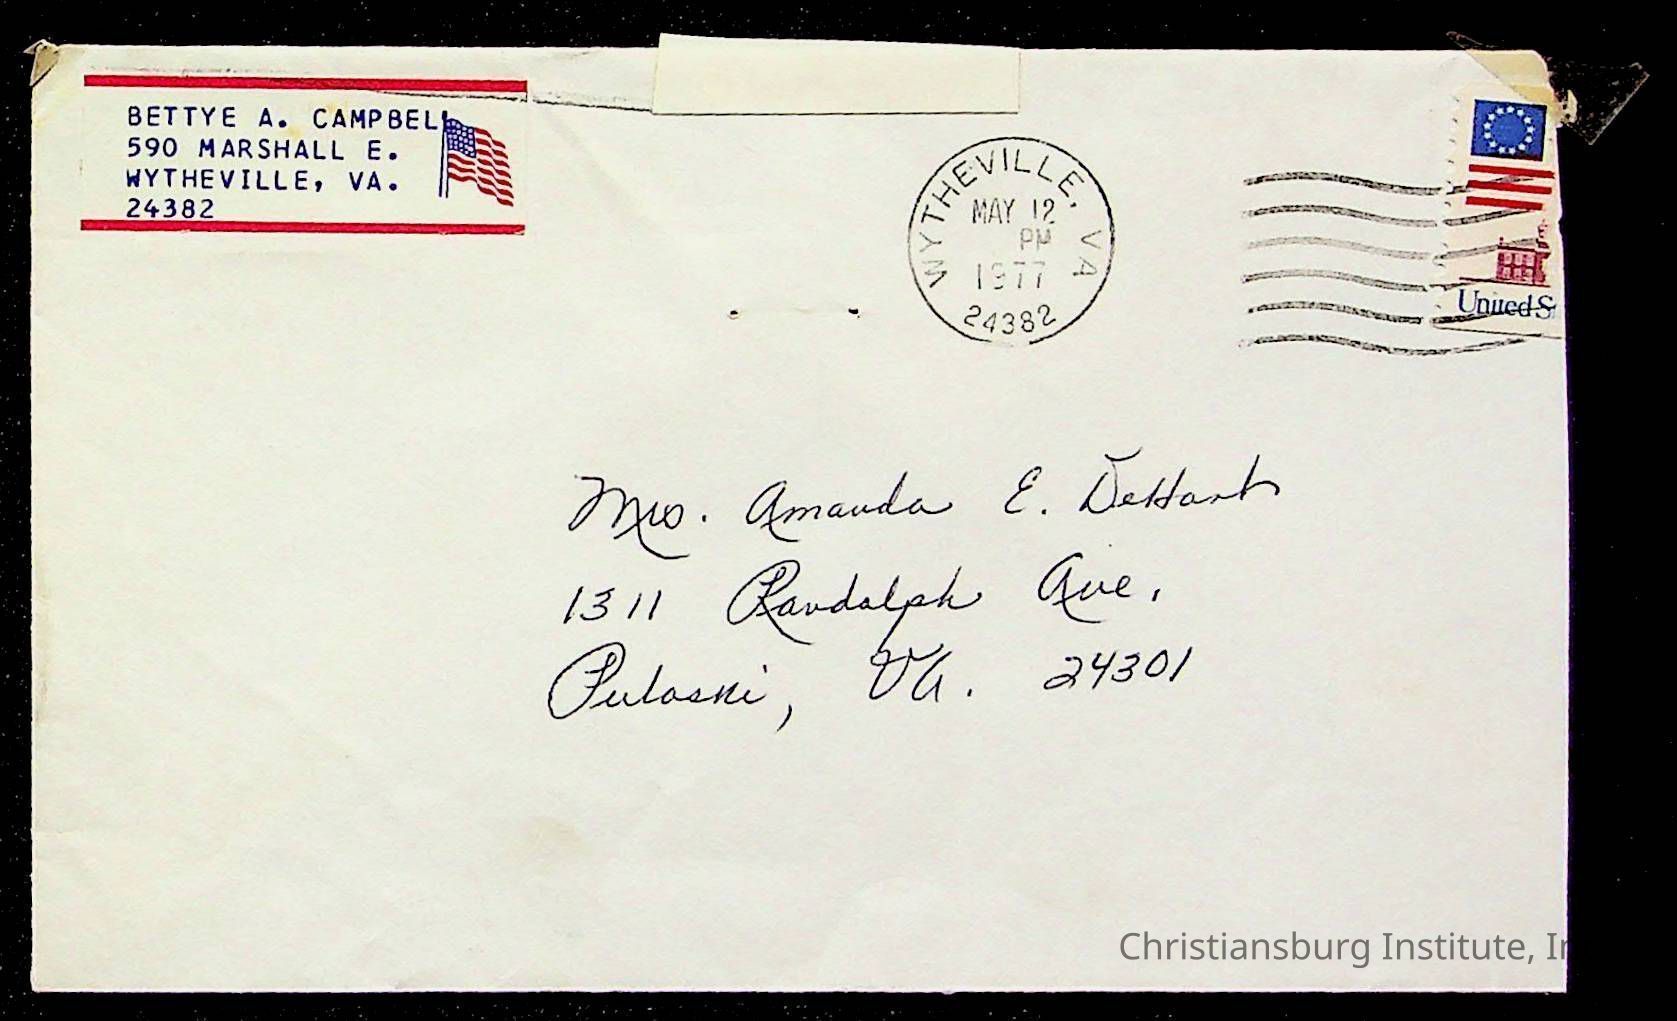 BETTYE A. CAMPBELL
590 MARSHALL E.
WYTHEVILLE, VA.
24382
WYTHEVILLE, VA
MAY 12
PM
1977
24382
United S
Mrs. Amanda E. DeHart
1311 Randolph Ave.
Pulaski, VA. 24301
Christiansburg Institute, In